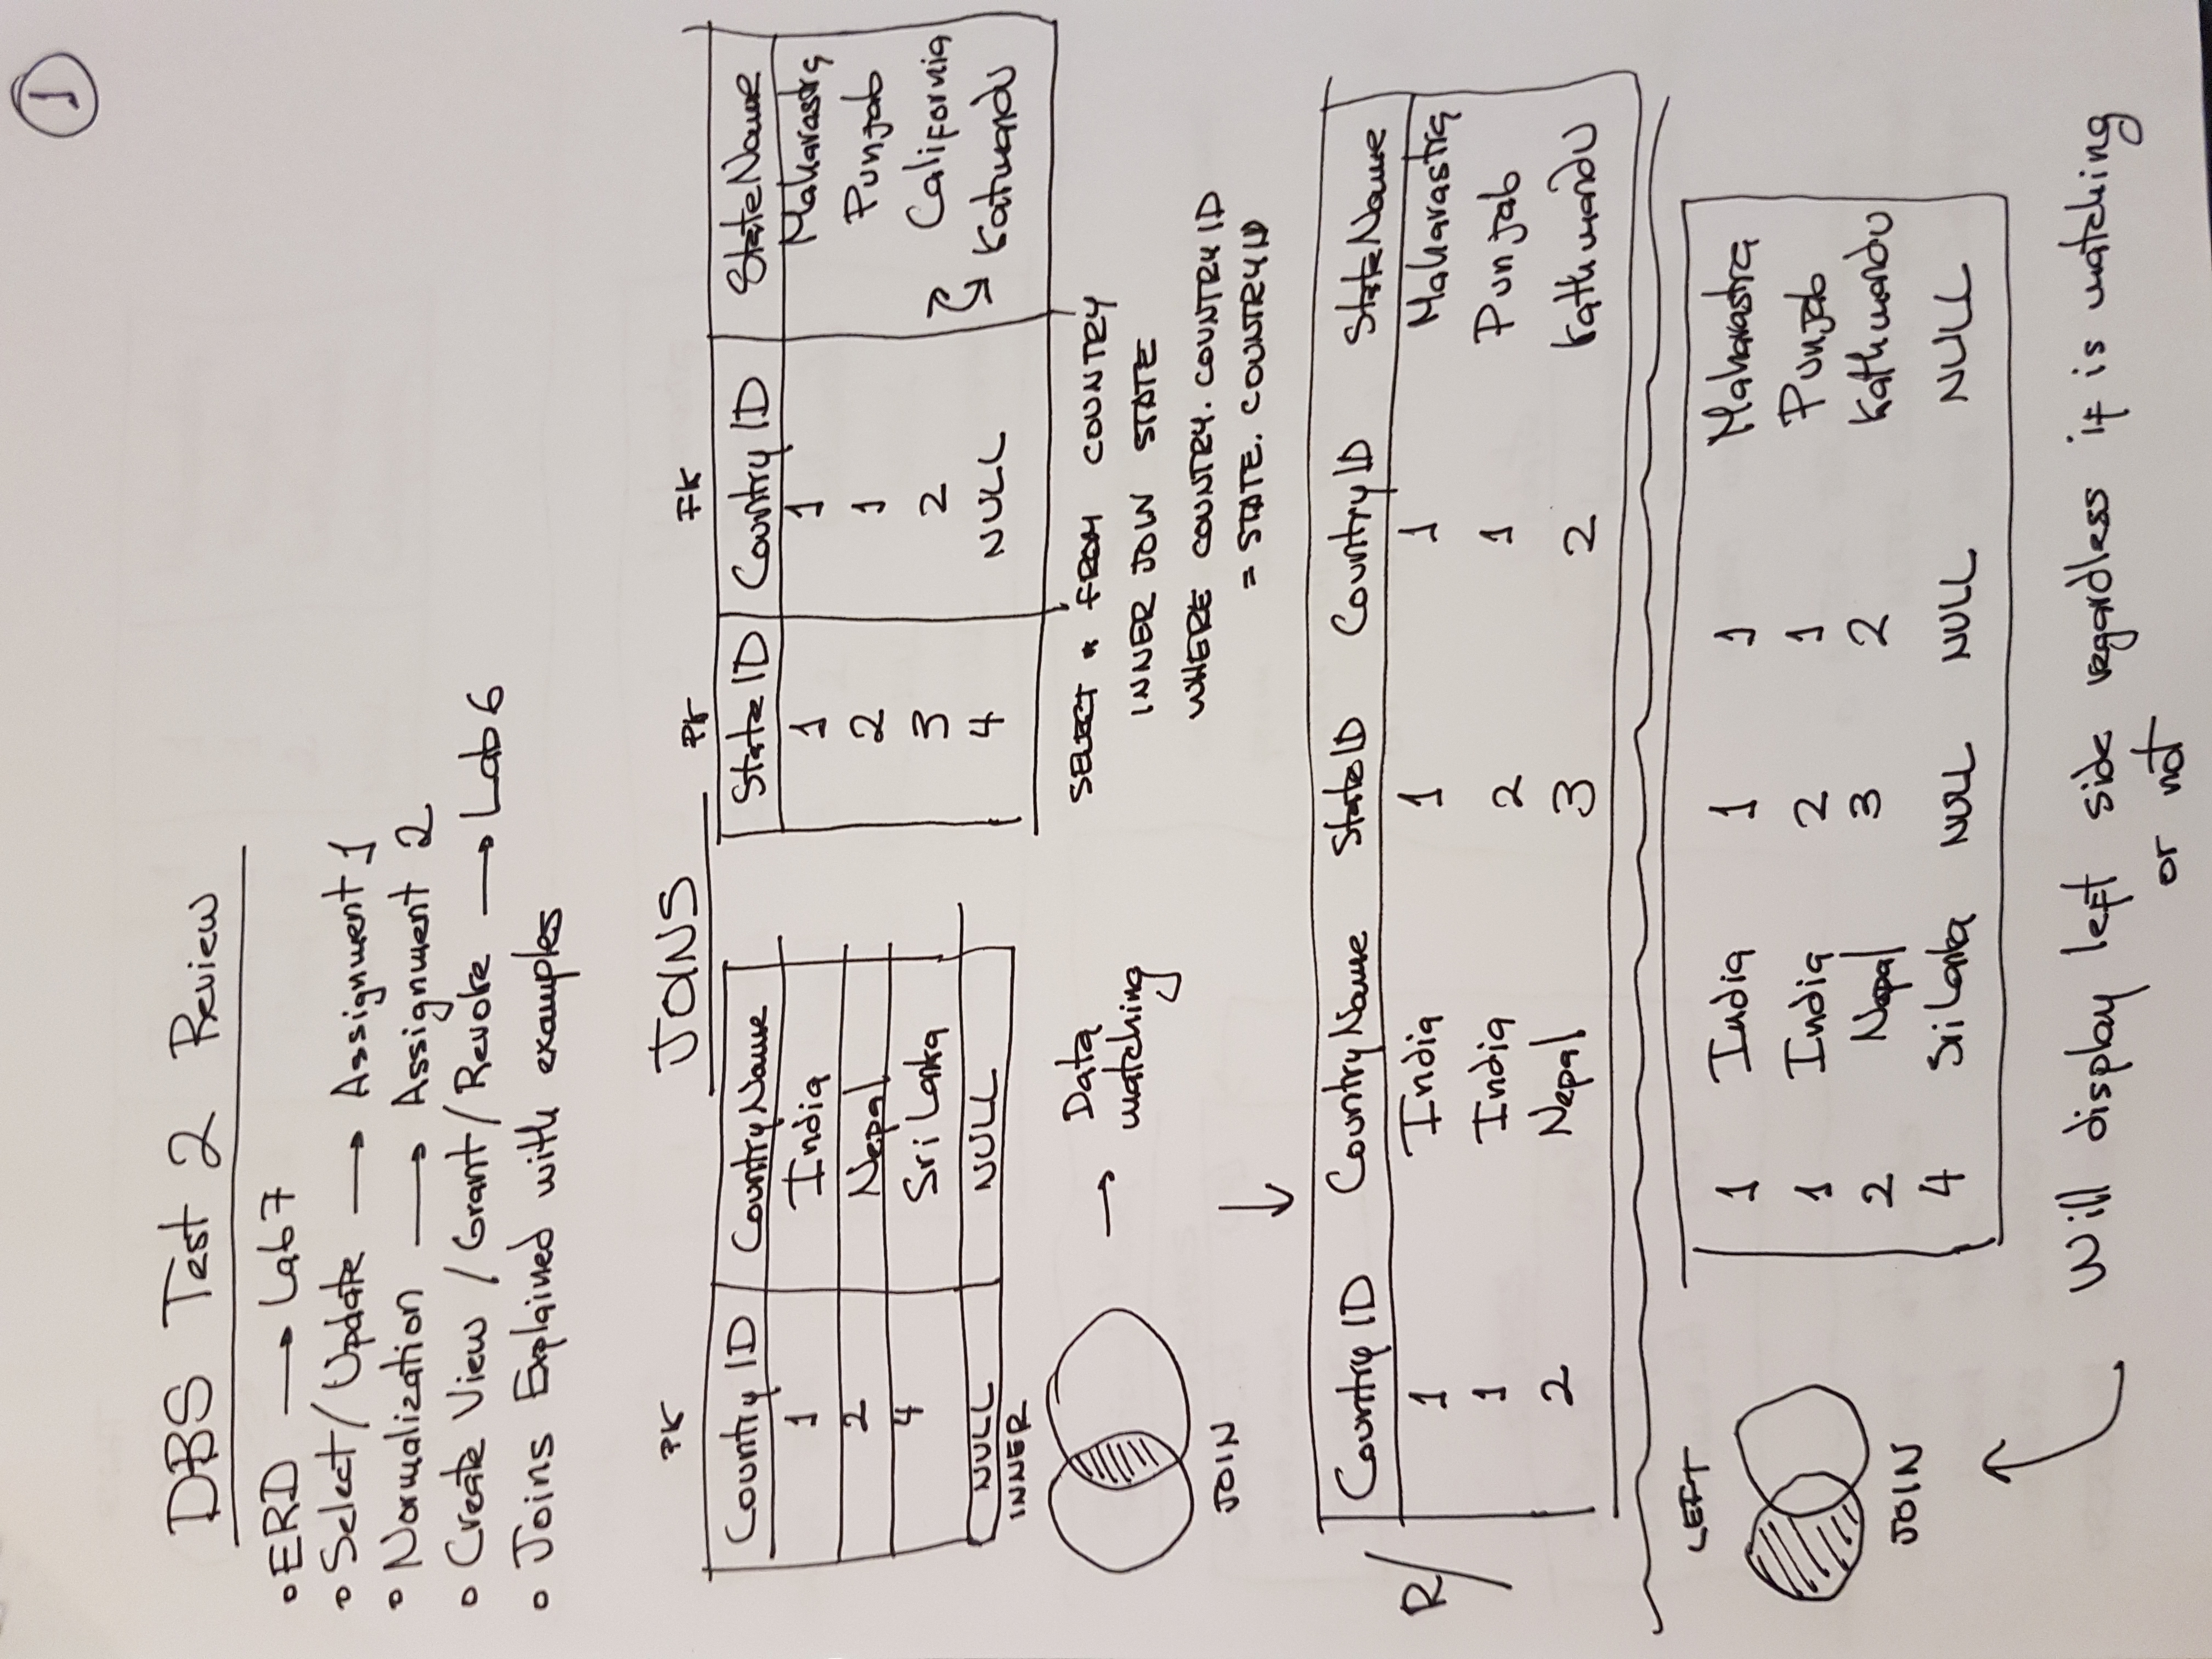 1
DBS Test 2 Review
∘ ERD → Lab 7
∘ Select / Update → Assignment 1
∘ Normalization → Assignment 2
∘ Create View / Grant / Revoke → Lab 6
∘ Joins Explained with examples
JOINS
PK
Country ID CountryName
1 India
2 Nepal
4 Sri Lanka
NULL NULL
PK FK
State ID Country ID StateName
1 1 Maharastra
2 1 Punjab
3 2 California
4 NULL Katmandu
INNER
JOIN
→ Data
matching
SELECT * FROM COUNTRY
INNER JOIN STATE
WHERE COUNTRY. COUNTRY ID
= STATE. COUNTRY ID
R/
Country ID CountryName StateID CountryID StateName
1 India 1 1 Maharastra
1 India 2 1 Punjab
2 Nepal 3 2 Kathmandu
LEFT
JOIN
1 India 1 1 Maharastra
1 India 2 1 Punjab
2 Nepal 3 2 Kathmandu
4 Sri Lanka NULL NULL NULL
Will display left side regardless if is matching
or not